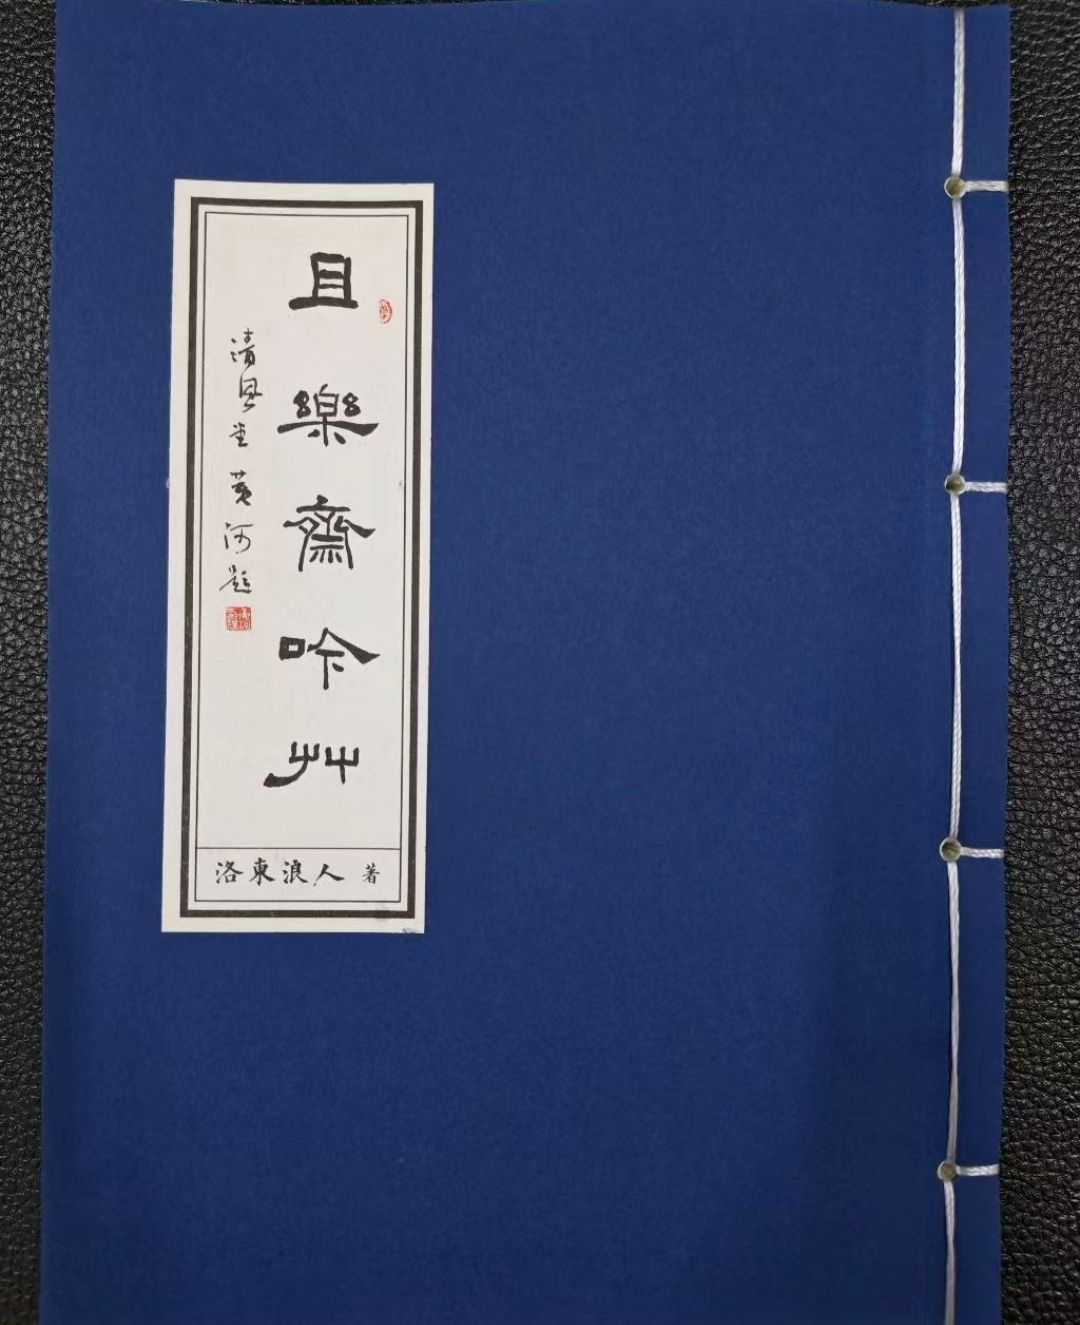 且樂齋吟艸
清風堂黄河題
洛東浪人 著